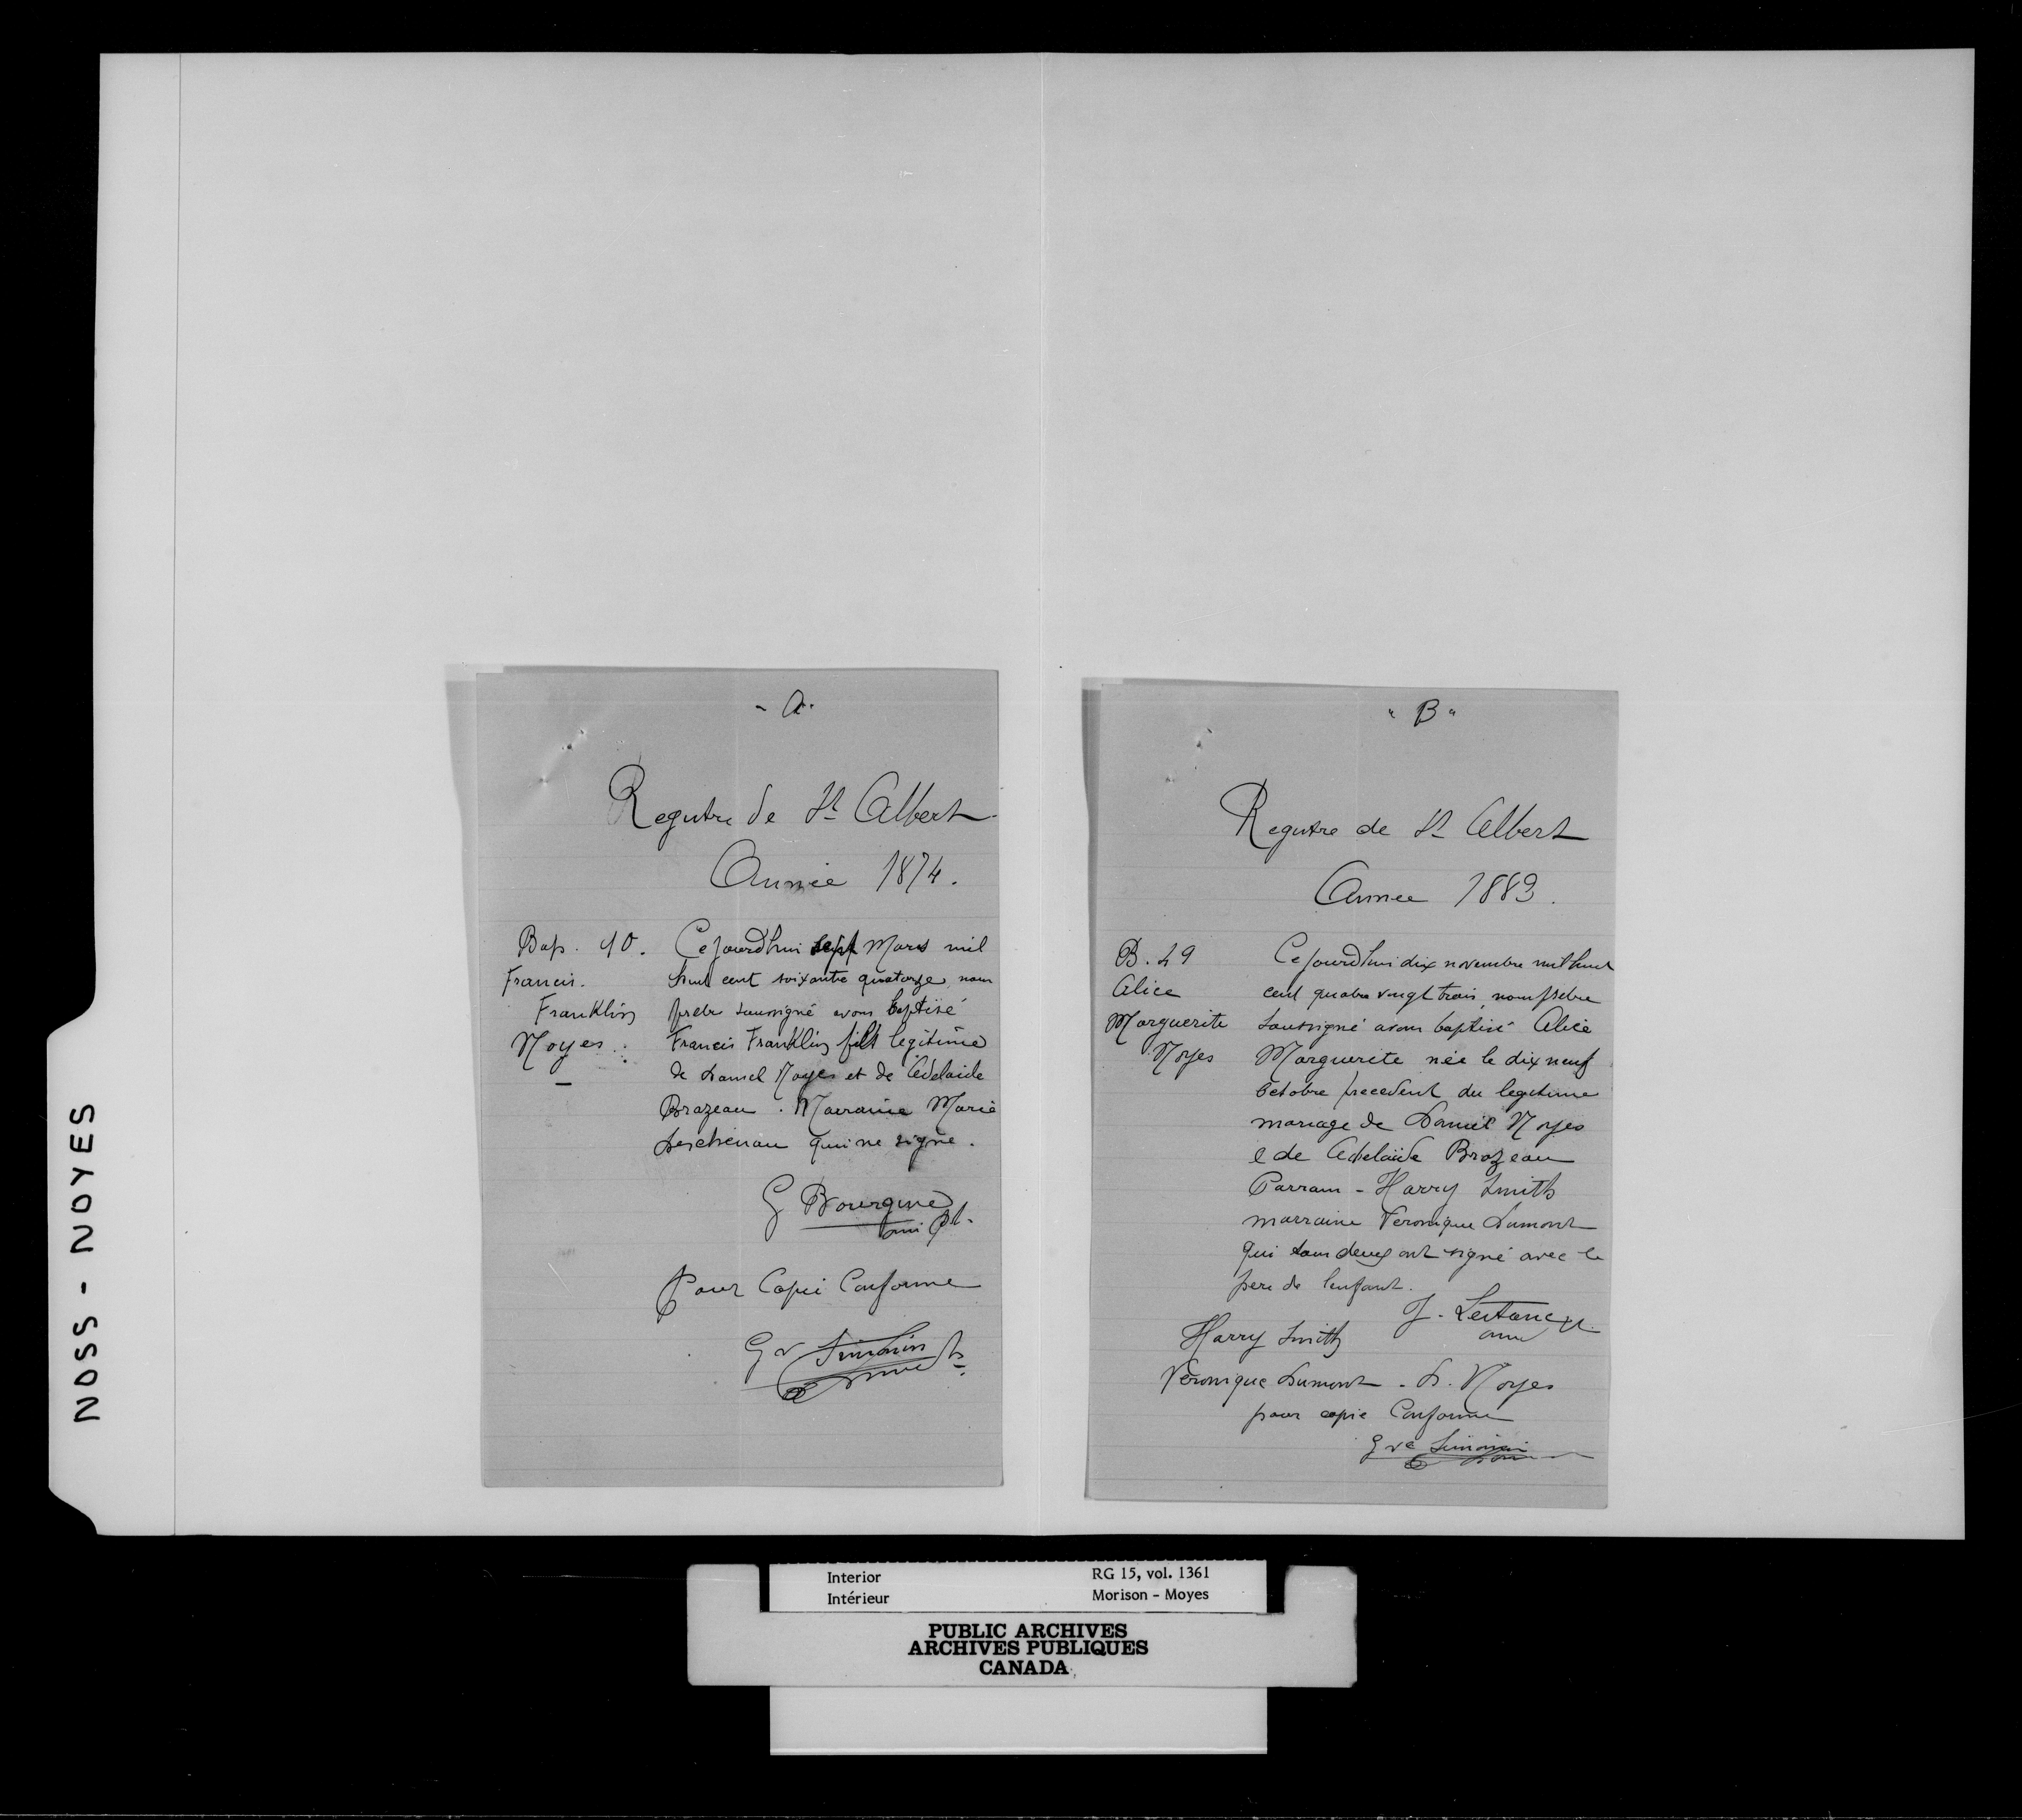 NOSS - NOYES
- A -
Registre de St Albert
Année 1874.
Bap. 40.
Francis.
Franklin
Noyes.
Cejourdhui sept Mars mil
huit cent soixante quatorze, nous
pretre soussigné avons baptisé
Francis Franklin fils legitime
de Daniel Noyes et de Adelaide
Brazeau. Marraine Marie
Deschenau qui ne signe.
G Bourgine
omi
Pour Copie Conforme
" B "
Registre de St Albert
Année 1883.
B. 49
Alice
Marguerite
Noyes
Cejourdhui dix novembre mil huit
cent quatre vingt trois, nous pretre
soussigné avons baptisé Alice
Marguerite née le dix neuf
Octobre precedent du legitime
mariage de Daniel Noyes
e de Adelaïde Brazeau
Parrain - Harry Smith
marraine Veronique Dumont
qui tous deux ont signé avec le
pere de lenfant.
J. Lestanc
Harry Smith
Veronique Dumont - D. Noyes
pour copie Conforme
Interior
Intérieur
RG 15, vol. 1361
Morison - Moyes
PUBLIC ARCHIVES
ARCHIVES PUBLIQUES
CANADA